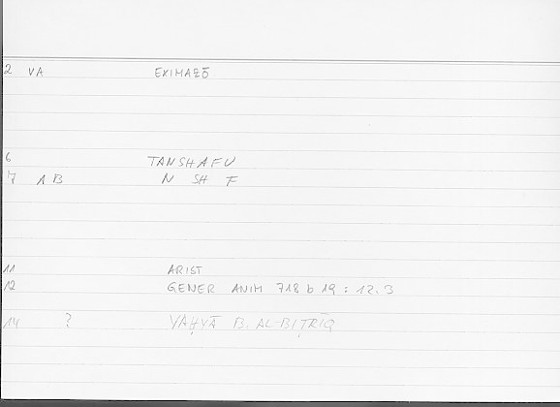 2 VA EKIMAZŌ
6 TANSHAFU
7 AB N SH F
11 ARIST
12 GENER ANIM 718 b 19 : 12.3
14 ? YAḤYĀ B. AL-BIṬRĪQ